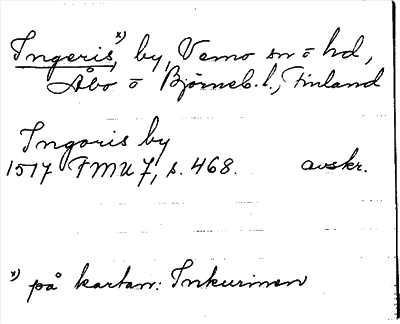 Ingeris, x) by, Vemo sn o hd,
Åbo o Björneb. l., Finland
Ingoris by
1517 FMU 7, s. 468. avskr.
x) på kartan: Inkurinen